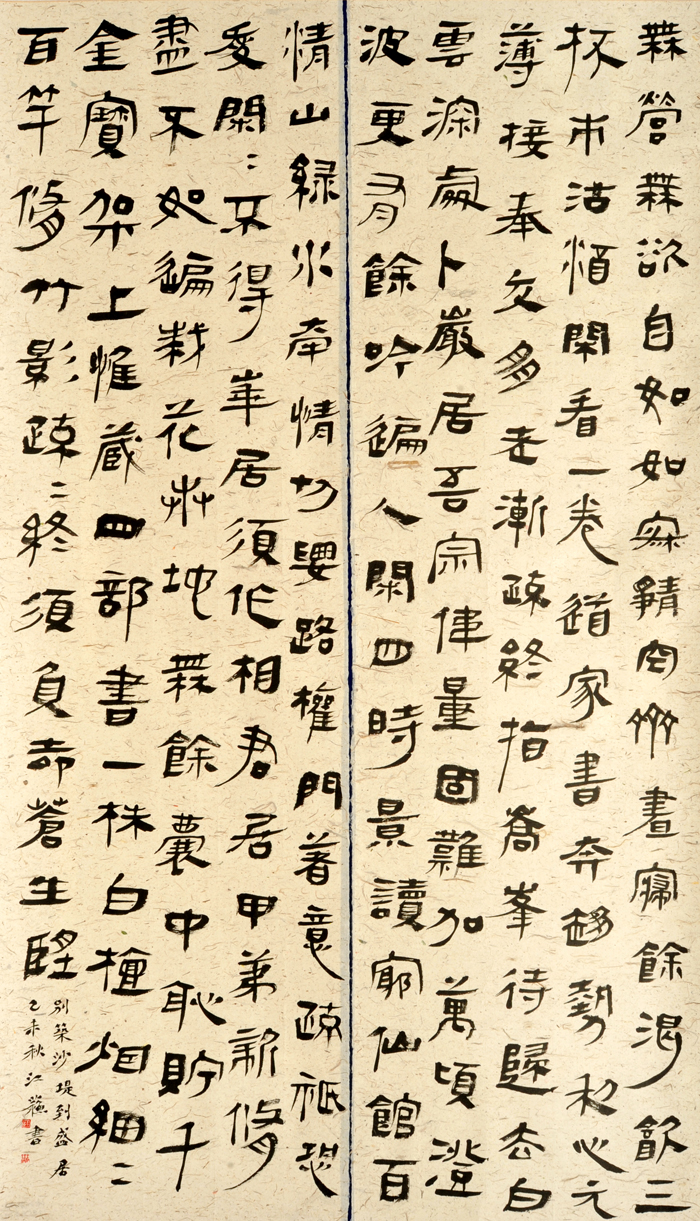 無營無欲自如如寂靜囪晝寐餘渴飲三
杯市沽酒閑看一卷道家書奔趨勢利心元
薄接奉交多走漸疏終指喬峯待歸去白
雲深處卜巖居吾宗偉量固難加萬頃澄
波更有餘吟遍人閑四時景讀窮仙館百
情山綠水牽情切要路權門著意疏祇恐
愛閑〻不得華居須作相君居甲第新修
盡不如遍栽花艸地無餘囊中恥貯千
金寶架上惟藏四部書一株白檀烟細〻
百竿修竹影疏〻終須負蒼生望
別築沙堤到盛居
乙未秋江蘇書